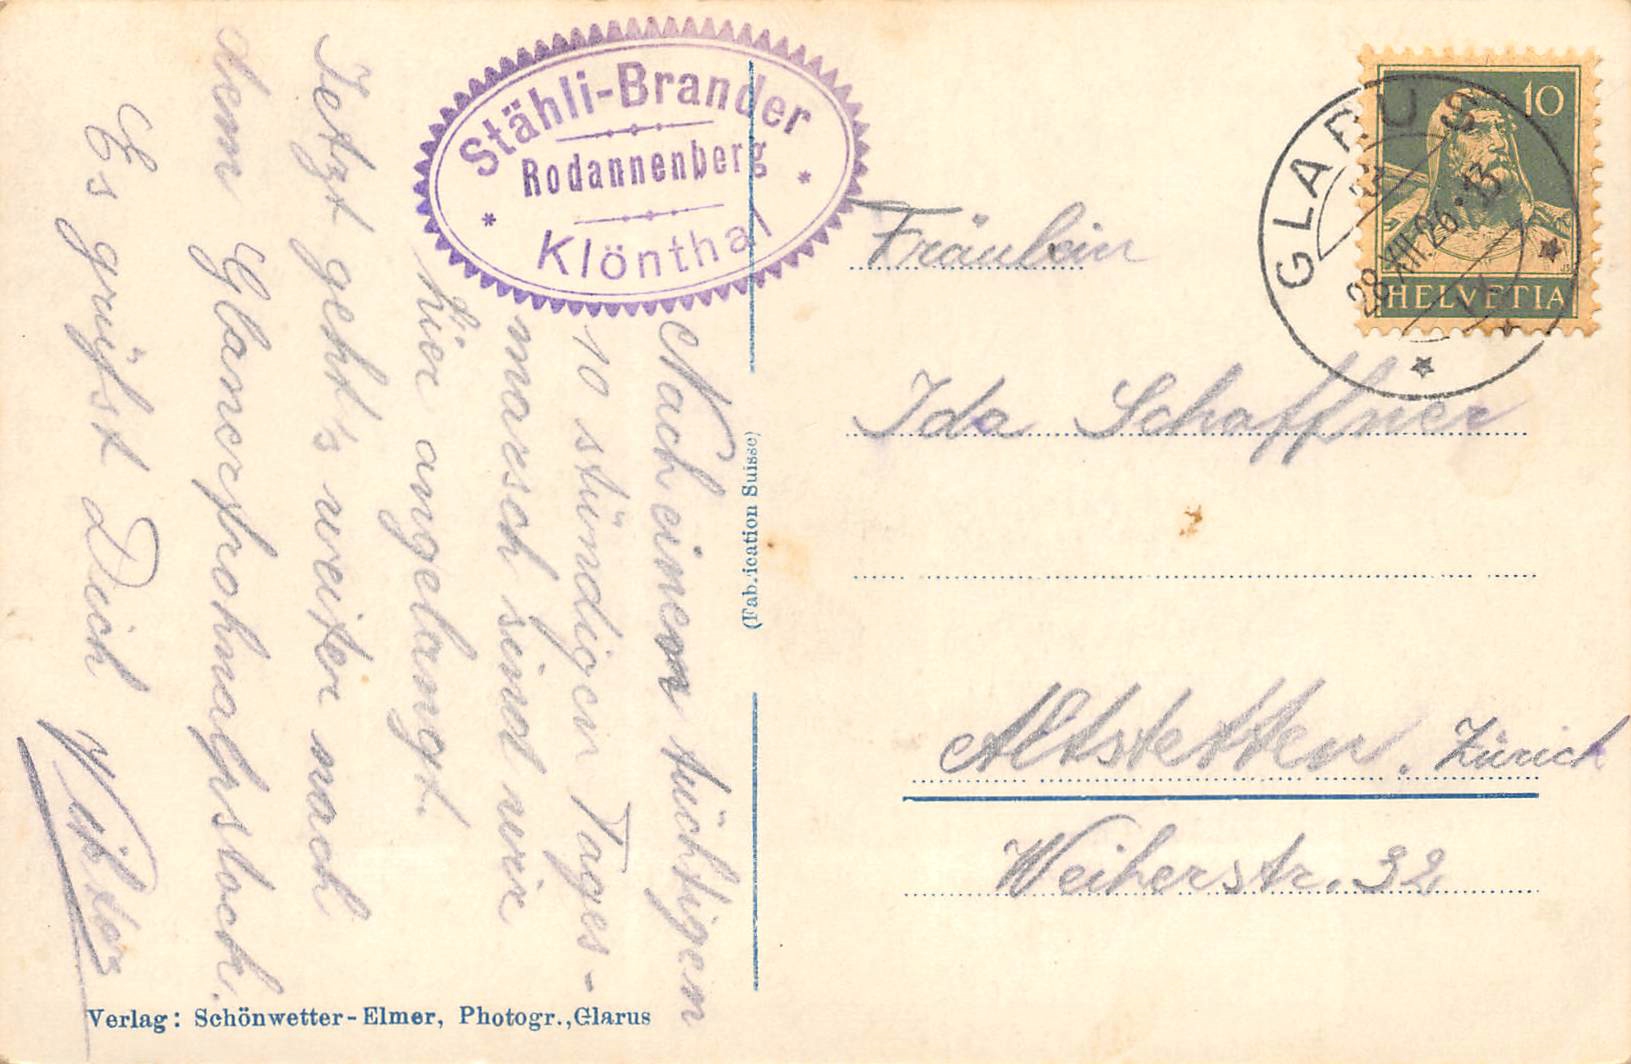 Stähli-Brander
Rodannenberg
Klönthal
Nach einem tüchtigen
10 stündigen Tages-
marsch sind wir
hier angelangt.
Jetzt geht's weiter nach
dem Glanerfrohnalpstock.
Es grüsst Dich
(Fabrication Suisse)
Verlag: Schönwetter-Elmer, Photogr., Glarus
10
HELVETIA
GLARUS
Fräulein
Ida Schaffner
Altstetten. Zürich
Weiherstr. 32